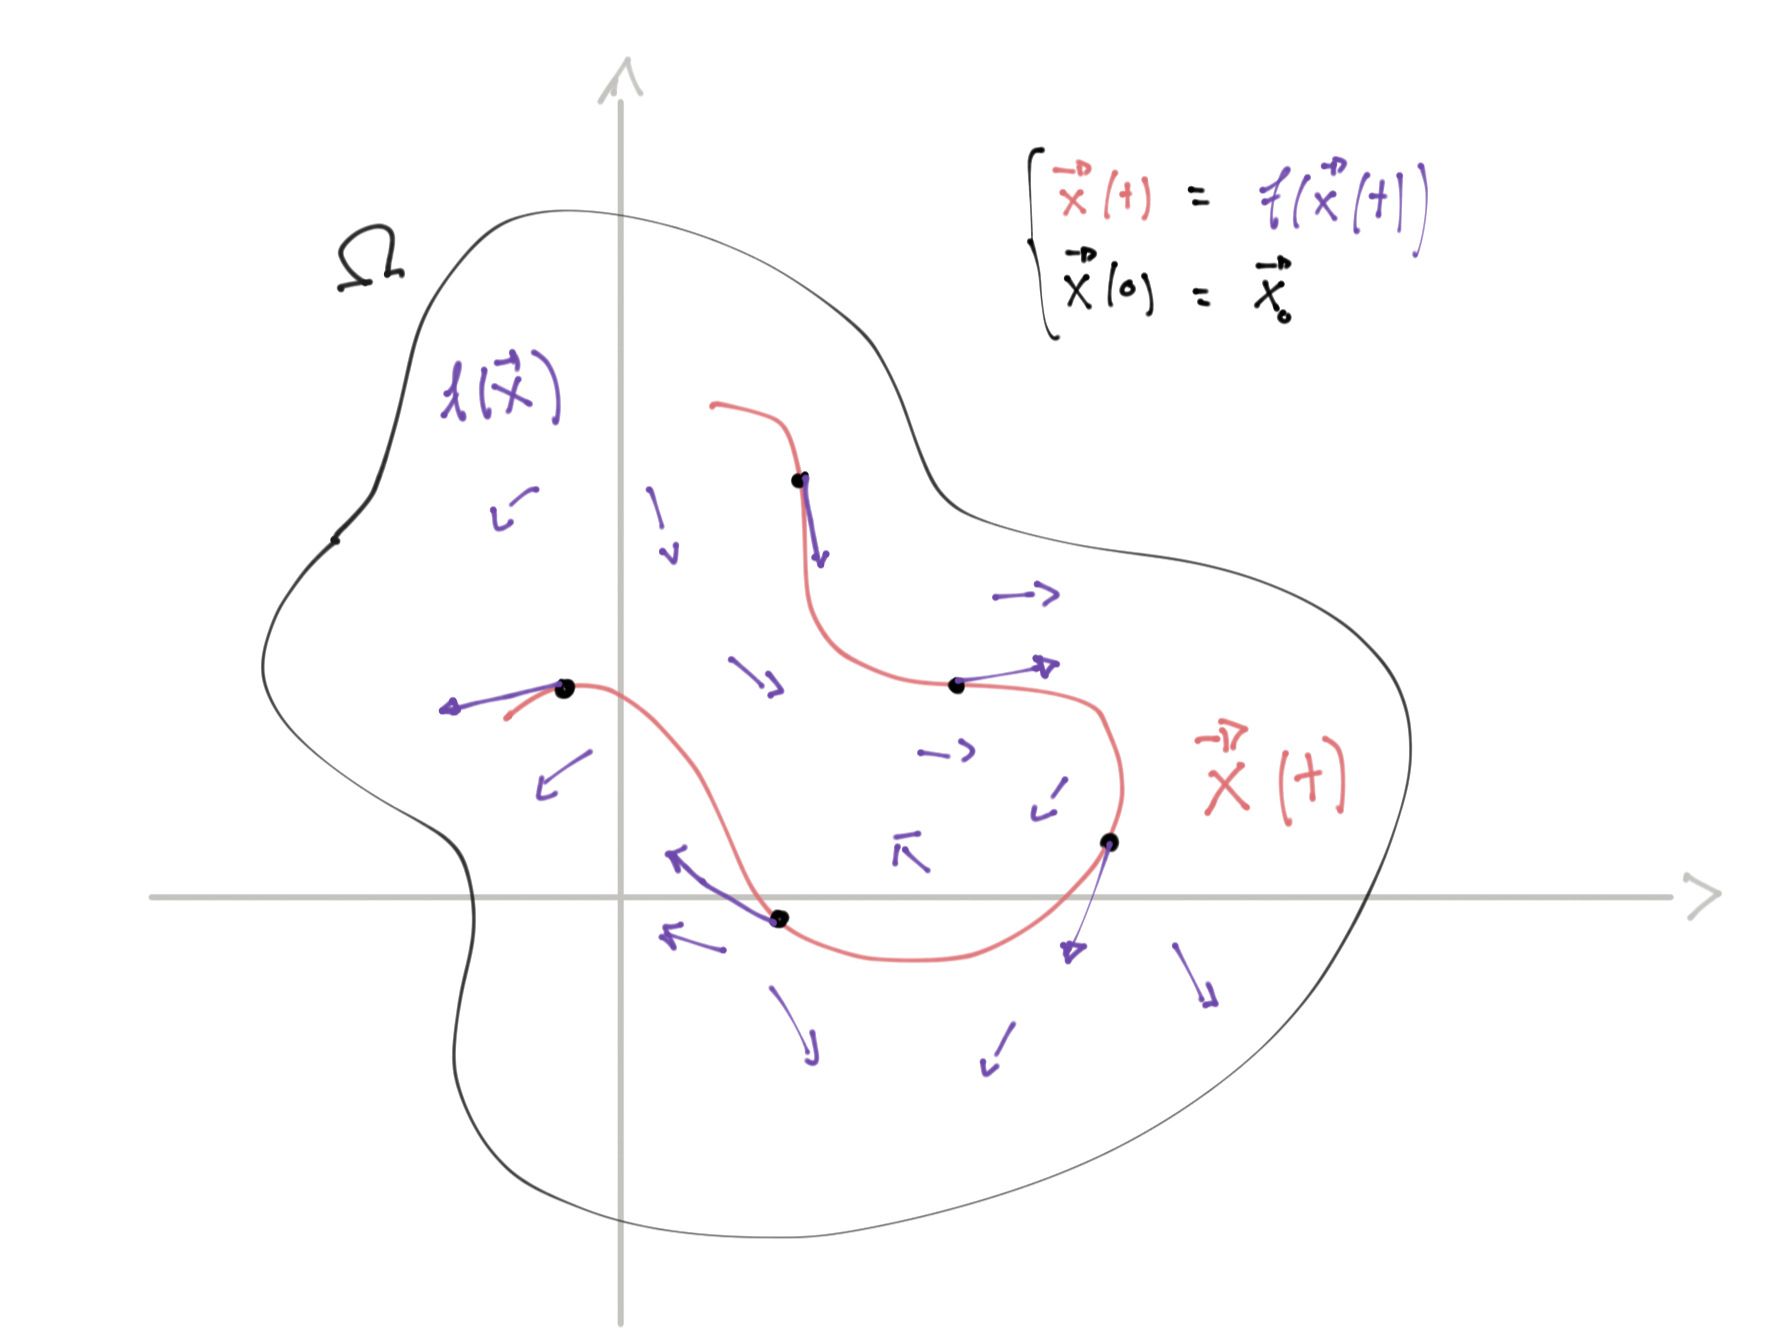 Ω
x⃗(t) = f(x⃗(t))
x⃗(0) = x⃗₀
f(x⃗)
x⃗(t)